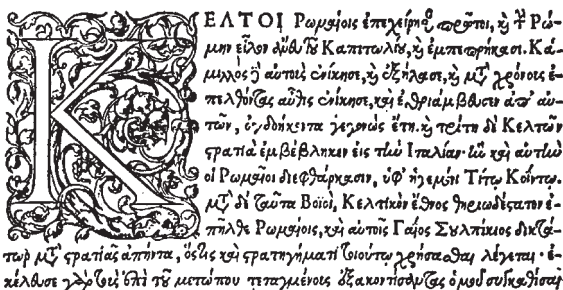 ΚΕΛΤΟΙ Ρωμαίοις ἐπεχείρησαν πρῶτοι, καὶ τὴν Ρώ-
μην εἷλον ἄνευ τοῦ Καπιτωλίου, καὶ ἐμπεπρήκασι. Κά-
μιλλος δὲ αὐτοὺς ἐνίκησε, καὶ ἐξήλασε, καὶ μετὰ χρόνον ἐ-
πελθόντας αὖθις ἐνίκησε, καὶ ἐθριάμβευσεν ἀπ' αὐ-
τῶν, ὀγδοήκοντα γεγονὼς ἔτη. καὶ τρίτη δὲ Κελτῶν
στρατιὰ ἐμβέβληκεν εἰς τὴν Ιταλίαν· ἣν καὶ αὐτὴν
οἱ Ρωμαῖοι διεφθάρκασιν, ὑφ' ἡγεμόνι Τίτῳ Κοΐντῳ.
μετὰ δὲ ταῦτα Βοϊοὶ, Κελτικὸν ἔθνος θηριωδέστατον ἐ-
πῆλθε Ρωμαίοις, καὶ αὐτοῖς Γάϊος Σουλπίκιος δικτά-
τωρ μετὰ στρατιᾶς ἀπήντα, ὅστις καὶ στρατηγήματι τοιούτῳ χρήσασθαι λέγεται· ἐ-
κέλευσε γὰρ τοὺς ἐπὶ τοῦ μετώπου τεταγμένους ἐξακοντίσαντας ὁμοῦ συγκαθίσαι